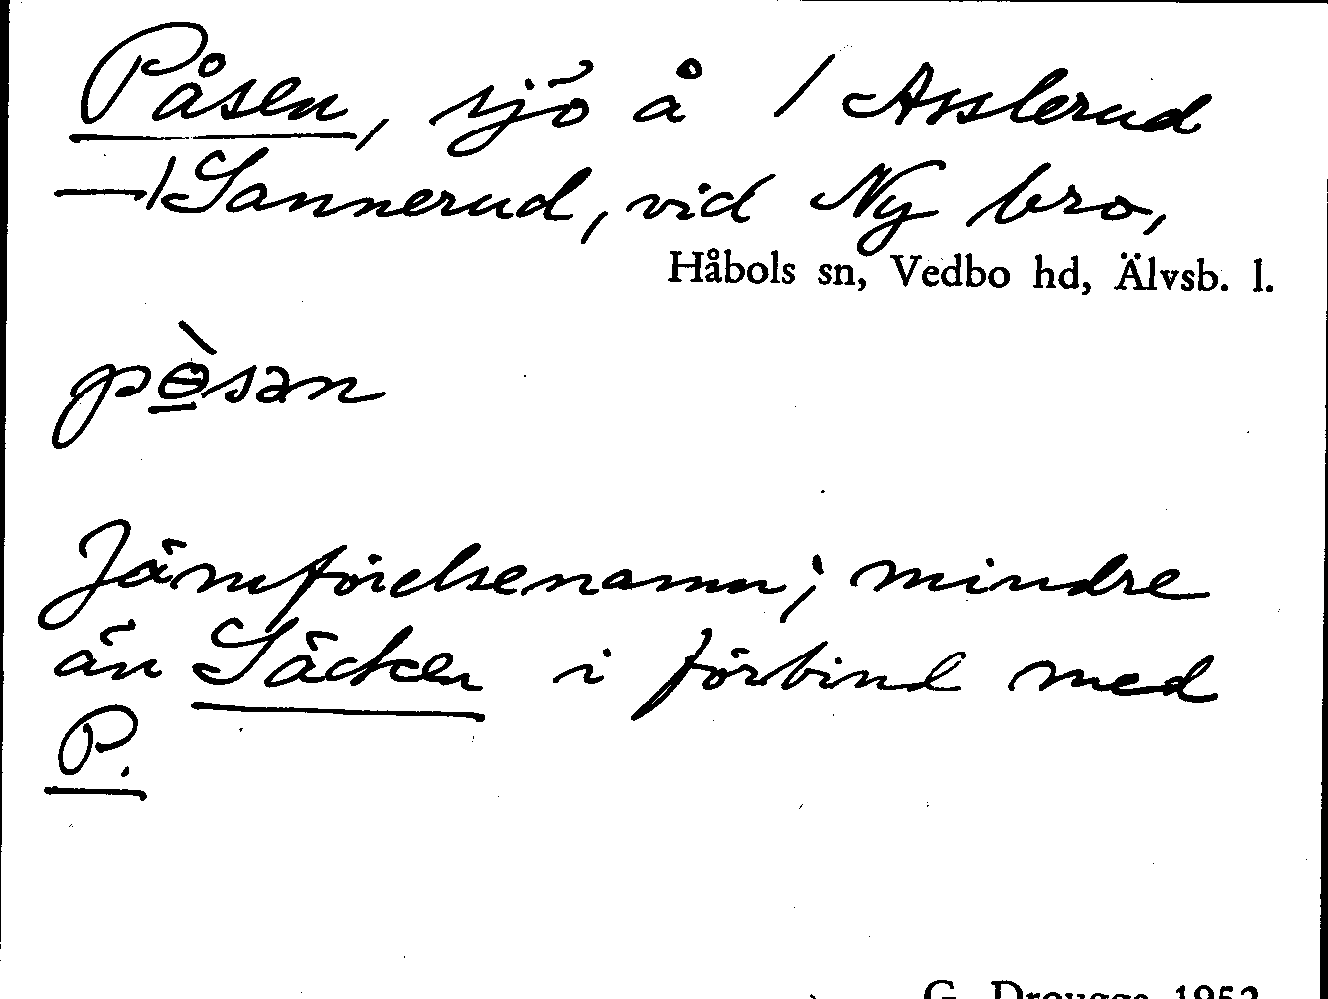 Påsen, sjö å / Asslerud
—/ Sannerud, vid Ny bro,
Håbols sn, Vedbo hd, Älvsb. l.
pɵ̀sən
Jämförelsenamn; mindre
än Säcken i förbind med
P.
G. Drougge 1952